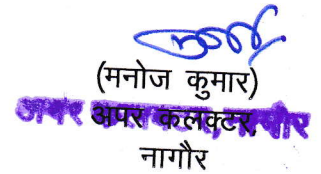 (मनोज कुमार)
अपर कलक्टर,
नागौर